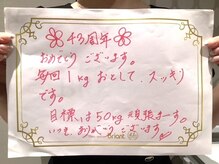 43周年
おめでとうございます。
毎回1kgおとして、スッキリ
です。
目標は50kg頑張ます。
いつも、ありがとうございます